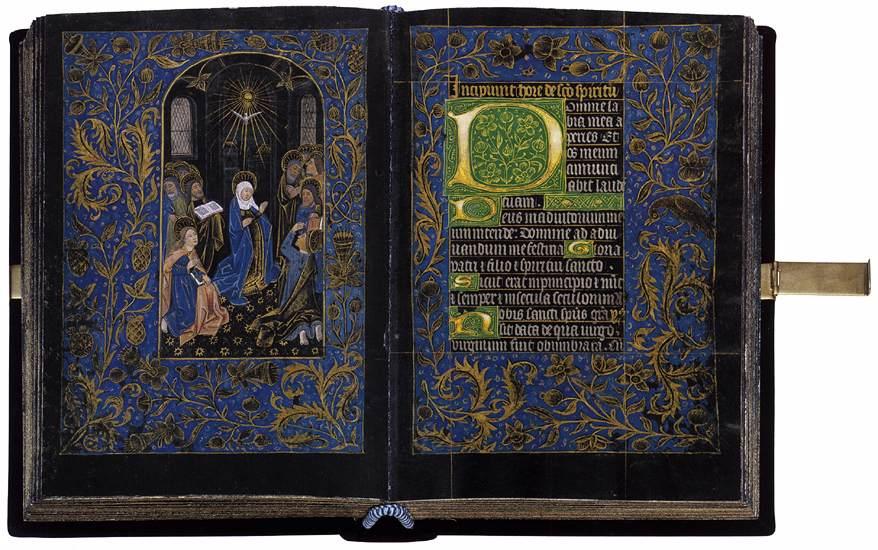 Incipiunt hore de sco spiritu
Domine la
bia mea a
peries Et
os meum
annunci
abit laude
tuam.
Deus in adiutorium me
um intende: Domine ad adiu
uandum me festina Gloria
patri ⁊ filio ⁊ spiritui sancto.
Sicut erat in principio ⁊ nūc
⁊ semper ⁊ in secula seculorum
Nobis sancti sp̄us
sit data de qua virgo
virginum fuit obumbrata.